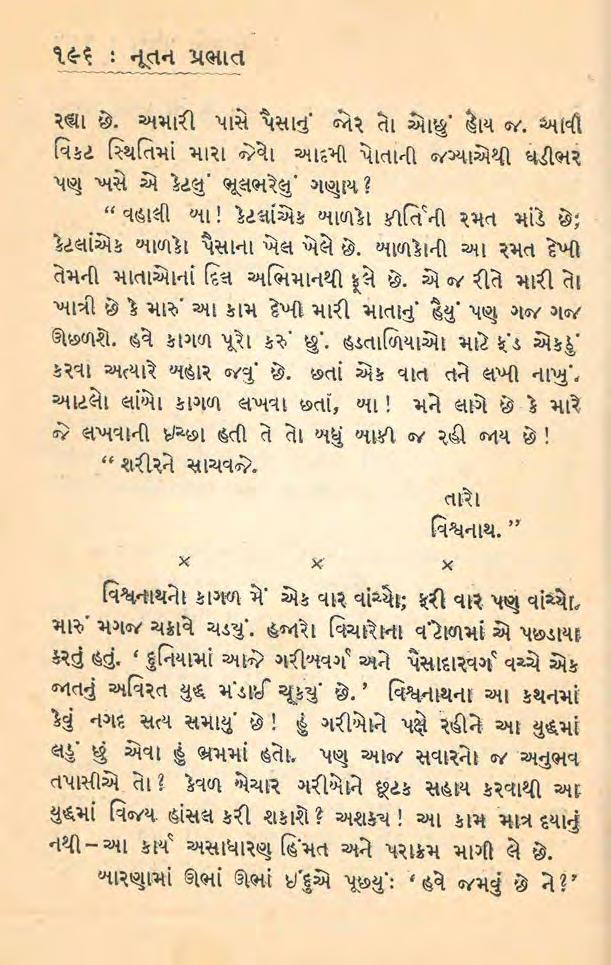 ૧૯૬ : નૂતન પ્રભાત
રહ્યા છે. અમારી પાસે પૈસાનું જોર તો ઓછું હોય જ. આવી
વિકટ સ્થિતિમાં મારા જેવો આદમી પોતાની જગ્યાએથી ઘડીભર
પણ ખસે એ કેટલું ભૂલભરેલું ગણાય ?
“ વહાલી બા! કેટલાંએક બાળકો કીર્તિની રમત માંડે છે;
કેટલાંએક બાળકો પૈસાના ખેલ ખેલે છે. બાળકોની આ રમત દેખી
તેમની માતાઓનાં દિલ અભિમાનથી ફૂલે છે. એ જ રીતે મારી તો
ખાત્રી છે કે મારું આ કામ દેખી મારી માતાનું હૈયું પણ ગજ ગજ
ઊછળશે. હવે કાગળ પૂરો કરું છું. હડતાળિયાઓ માટે ફંડ એકઠું
કરવા અત્યારે બહાર જવું છે. છતાં એક વાત તને લખી નાખું.
આટલો લાંબો કાગળ લખવા છતાં, બા! મને લાગે છે કે મારે
જે લખવાની ઇચ્છા હતી તે તો બધું બાકી જ રહી જાય છે!
“ શરીરને સાચવજે.
તારો
વિશ્વનાથ.”
× × ×
વિશ્વનાથનો કાગળ મેં એક વાર વાંચ્યો; ફરી વાર પણ વાંચ્યો.
મારું મગજ ચક્રાવે ચડયું. હજારો વિચારોના વંટોળમાં એ પછડાયા
કરતું હતું. ‘ દુનિયામાં આજે ગરીબવર્ગ અને પૈસાદારવર્ગ વચ્ચે એક
જાતનું અવિરત યુદ્ધ મંડાઈ ચૂકયું છે.’ વિશ્વનાથના આ કથનમાં
કેવું નગદ સત્ય સમાયું છે! હું ગરીબોને પક્ષે રહીને આ યુદ્ધમાં
લડું છું એવા હું ભ્રમમાં હતો. પણ આજ સવારનો જ અનુભવ
તપાસીએ તો? કેવળ બેચાર ગરીબોને છૂટક સહાય કરવાથી આ
યુદ્ધમાં વિજય હાંસલ કરી શકાશે? અશકય! આ કામ માત્ર દયાનું
નથી – આ કાર્ય અસાધારણ હિંમત અને પરાક્રમ માગી લે છે.
બારણામાં ઊભાં ઊભાં ઇંદુએ પૂછયું: ‘ હવે જમવું છે ને?’